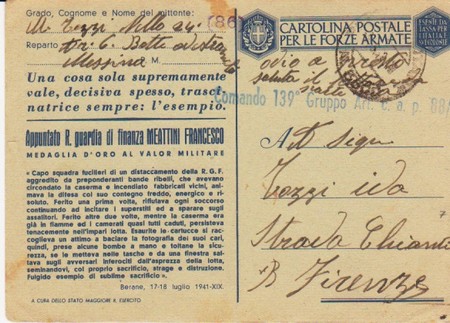 Grado, Cognome e Nome del mittente:
Tozzi Nello
(86)
Reparto
Messina M
Una cosa sola supremamente
vale, decisiva spesso, trasci,
natrice sempre: l'esempio.
Appuntato R. guardia di finanza MEATTINI FRANCESCO
MEDAGLIA D'ORO AL VALOR MILITARE
« Capo squadra fucilieri di un distaccamento della R.G.F.
aggredito da preponderanti bande ribelli, che avevano
circondato la caserma e incendiato fabbricati vicini, ani-
mava la difesa col suo contegno freddo, energico e ri-
soluto. Ferito una prima volta, rifiutava ogni soccorso
continuando ad incitare i superstiti ed a sparare sugli
assalitori. Ferito altre due volte, mentre la caserma era
già in fiamme ed i camerati quasi tutti caduti, persisteva
tenacemente nell'impari lotta. Esaurite le cartucce si rac-
coglieva un attimo a baciare la fotografia dei suoi cari,
quindi, prese alcune bombe a mano e toltane la sicu-
rezza, se le metteva nelle tasche e da una finestra sal-
tava sugli avversari inferociti dall'asprezza della lotta,
seminandovi, col proprio sacrificio, strage e distruzione.
Fulgido esempio di sublime sacrificio ».
Berane, 17-18 luglio 1941-XIX.
A CURA DELLO STATO MAGGIORE R. ESERCITO
CARTOLINA POSTALE
PER LE FORZE ARMATE
ESENTE DA
TASSA PER
L'ITALIA E
Comando 139° Gruppo Art. c. a. p. 88/
Tozzi ida
Strada Chianti
Firenze